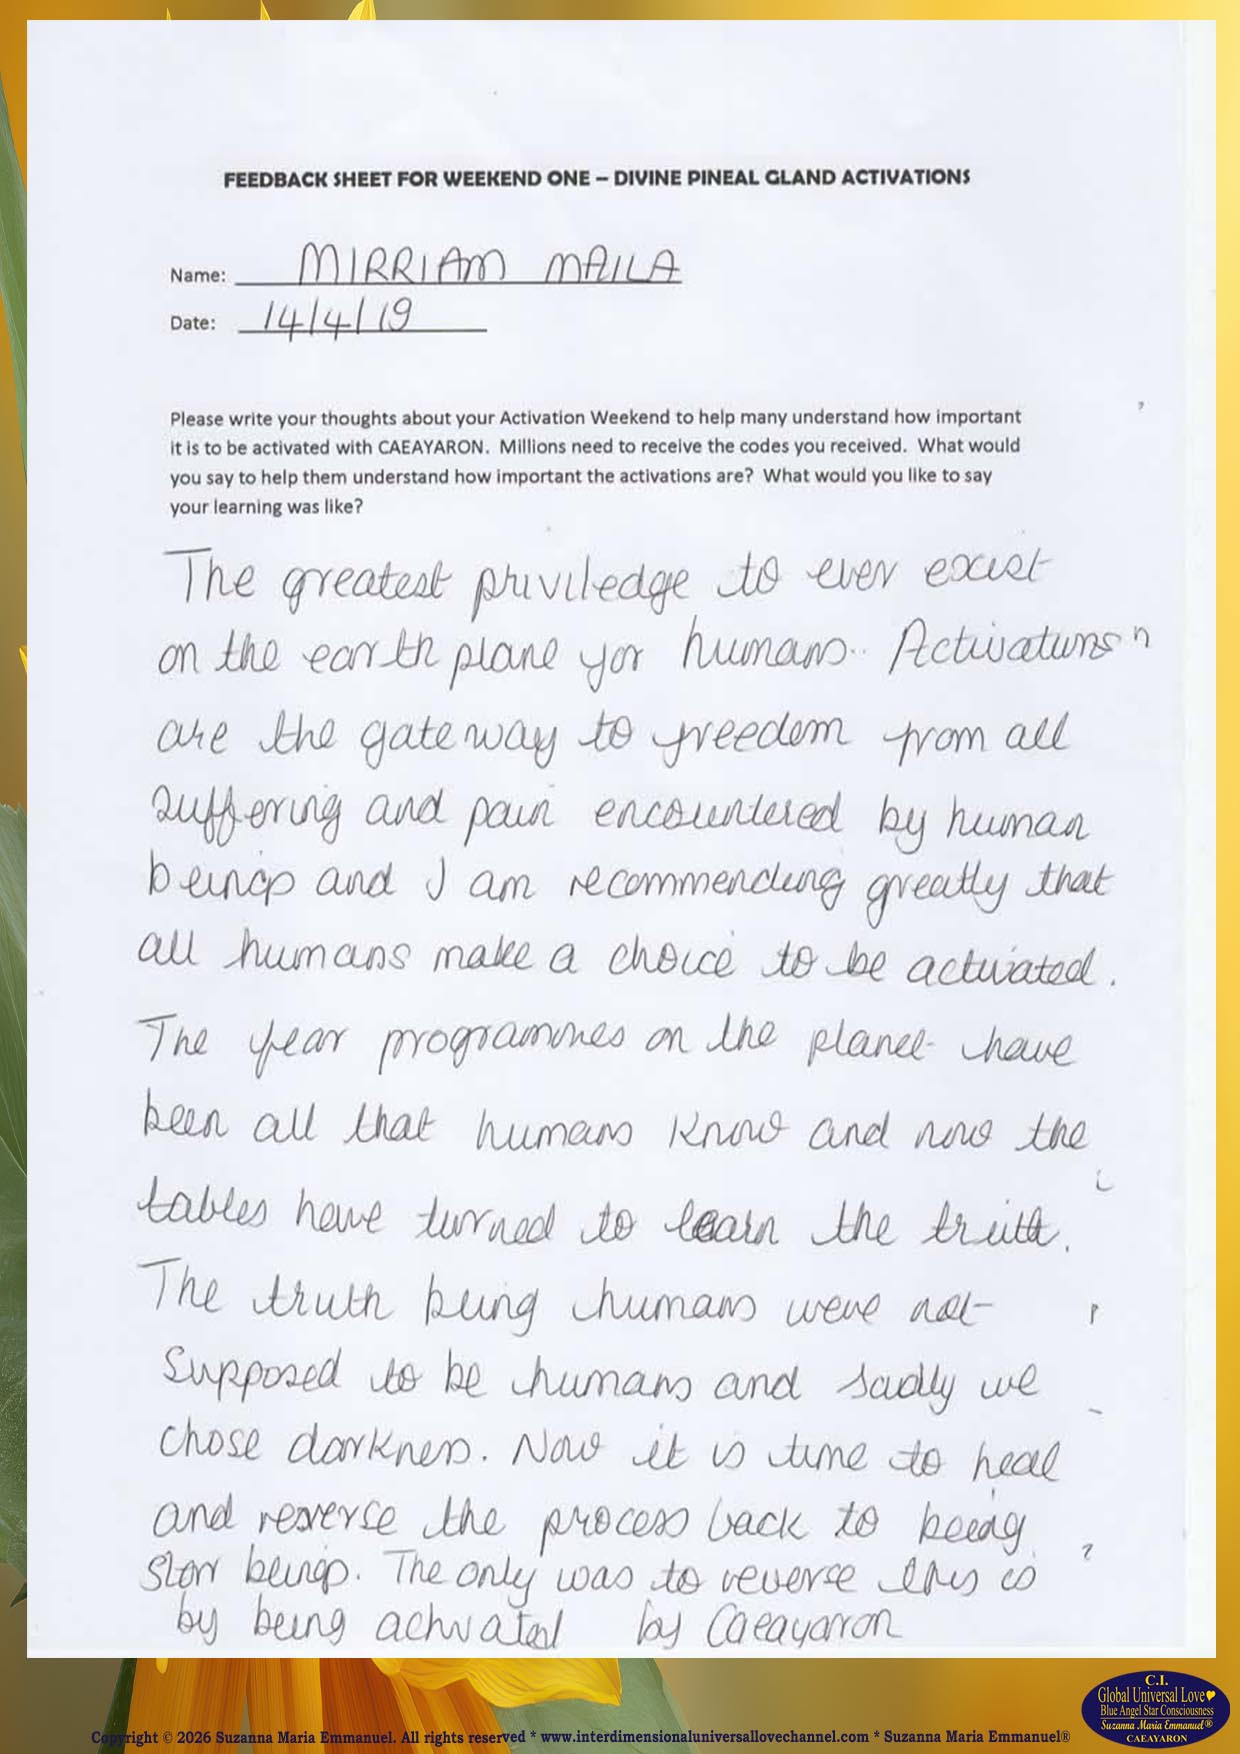 FEEDBACK SHEET FOR WEEKEND ONE – DIVINE PINEAL GLAND ACTIVATIONS
Name: MIRRIAM MAILA
Date: 14/4/19
Please write your thoughts about your Activation Weekend to help many understand how important
it is to be activated with CAEAYARON. Millions need to receive the codes you received. What would
you say to help them understand how important the activations are? What would you like to say
your learning was like?
The greatest priviledge to ever exist
on the earth plane for humans.. Activations
are the gateway to freedom from all
suffering and pain encountered by human
beings and I am recommending greatly that
all humans make a choice to be activated.
The fear programmes on the planet have
been all that humans know and now the
tables have turned to learn the truth.
The truth being humans were not
supposed to be humans and sadly we
chose darkness. Now it is time to heal
and reverse the process back to being
star beings. The only was to reverse this is
by being activated by Caeayaron
C.I.
Global Universal Love
Blue Angel Star Consciousness
Suzanna Maria Emmanuel®
CAEAYARON
Copyright © 2026 Suzanna Maria Emmanuel. All rights reserved * www.interdimensionaluniversallovechannel.com * Suzanna Maria Emmanuel®